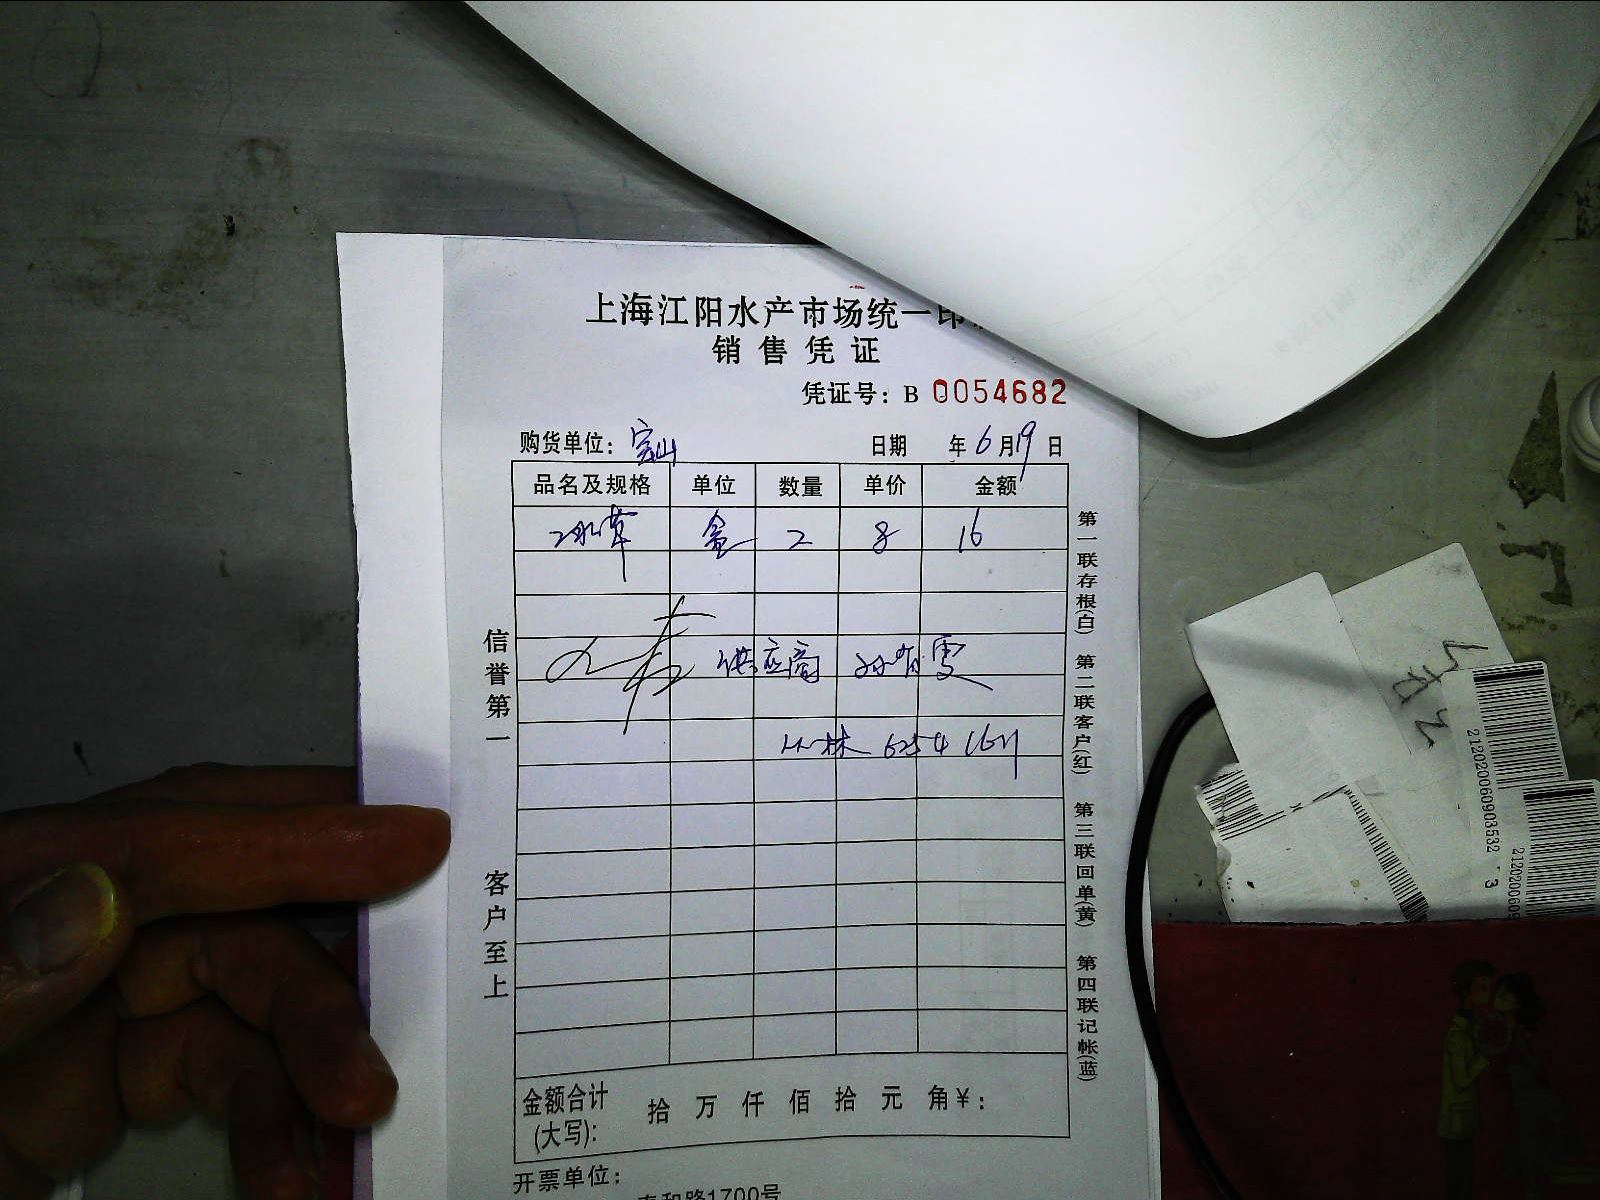 上海江阳水产市场统一印
销售凭证
凭证号：B 0054682
购货单位：宝山 日期 年 6 月 19 日
品名及规格 单位 数量 单价 金额
冰草 盒 2 8 16
供应商 孙雪
6254 1611
信誉第一 客户至上
第一联存根(白) 第二联客户(红) 第三联回单(黄) 第四联记帐(蓝)
金额合计(大写)： 拾 万 仟 佰 拾 元 角 ¥：
开票单位：
泰和路1700号
212020060903532 3
2120200609